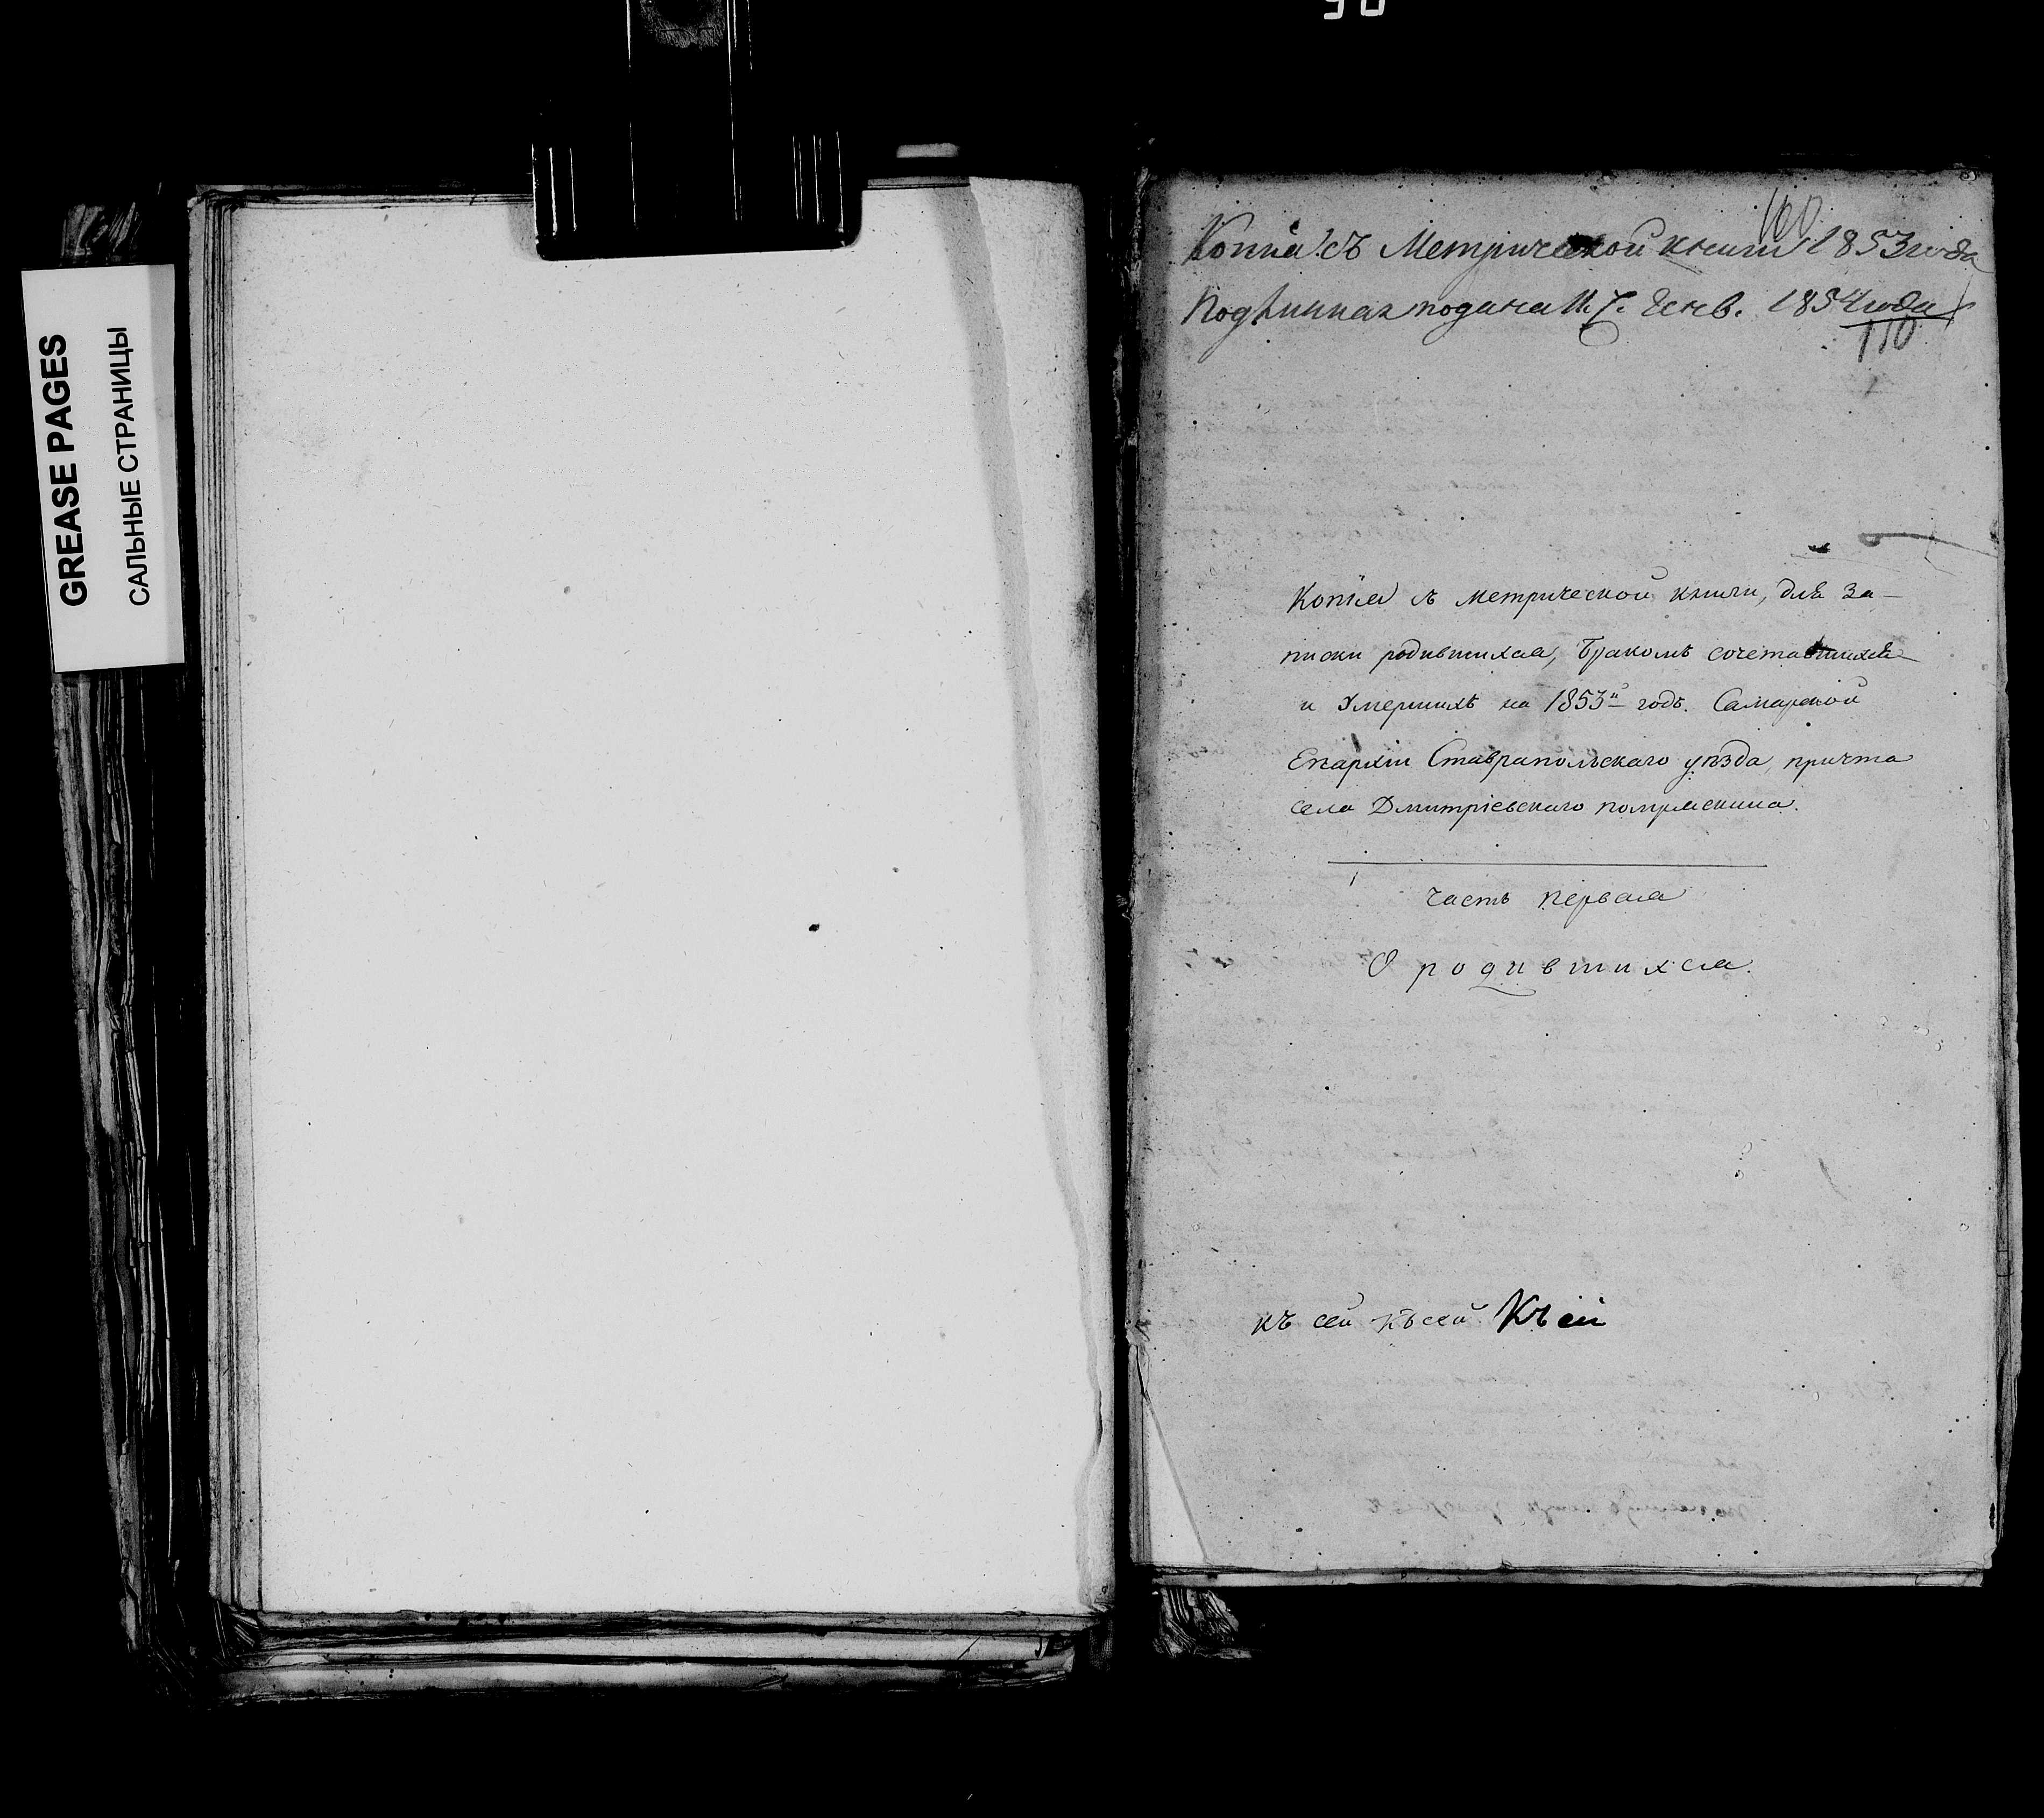 GREASE PAGES
САЛЬНЫЕ СТРАНИЦЫ
100
Копиа съ Метрической книги 1853 года
Подлинная подана Генв. 1854 года
110
Копіа съ метрической книги, для за-
писки родившихся, бракомъ сочетавшихся
и Умершихъ на 1853й годъ. Самарской
Епархіи Ставрапольскаго уѣзда, причта
села Дмитріевскаго помряскина.
Часть первая
О родившихся.
къ сей къ сей Къ сей